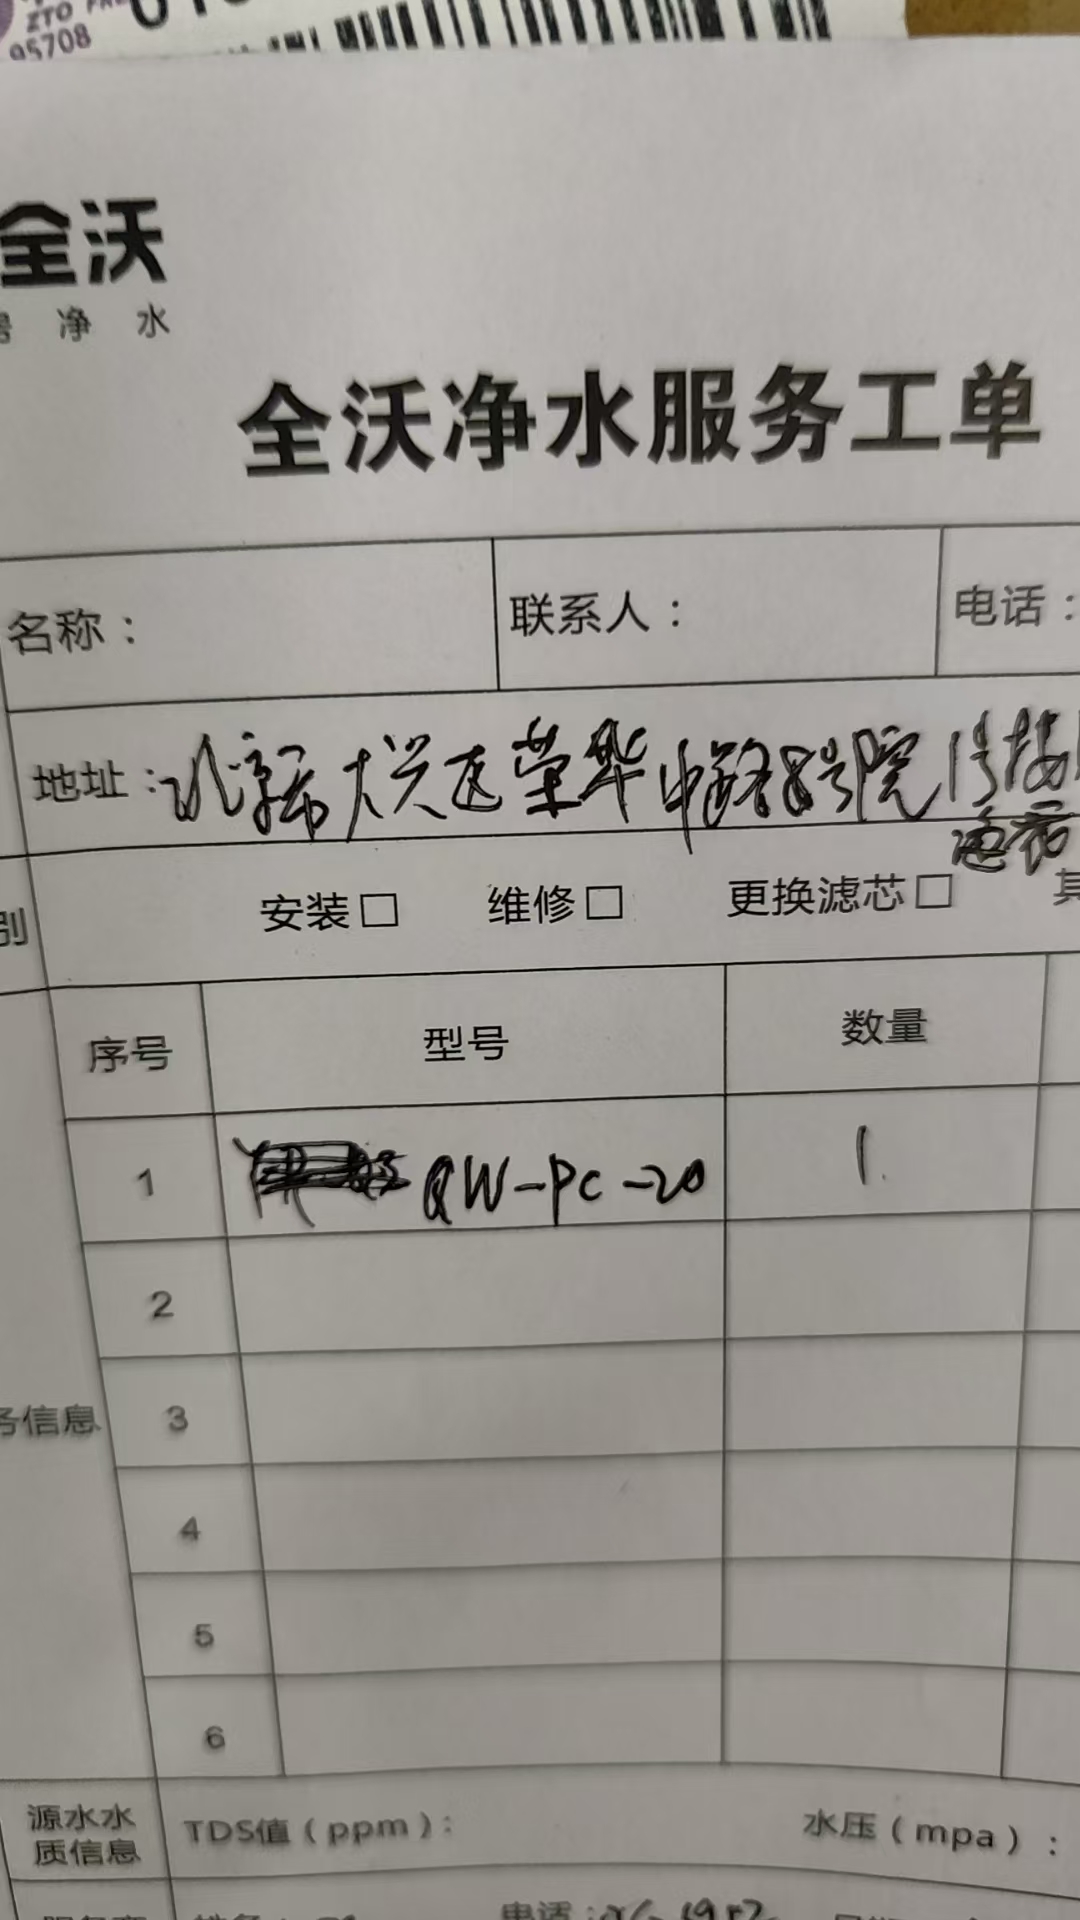 ZTO
95708
全沃
净水
全沃净水服务工单
名称： 联系人： 电话：
地址：北京市大兴区荣华中路8号院1号楼
别 安装□ 维修□ 更换滤芯□ 其
序号 型号 数量
1 QW-PC-20 1
2
3
务信息
4
5
6
源水水质信息 TDS值（ppm）： 水压（mpa）：
电话：